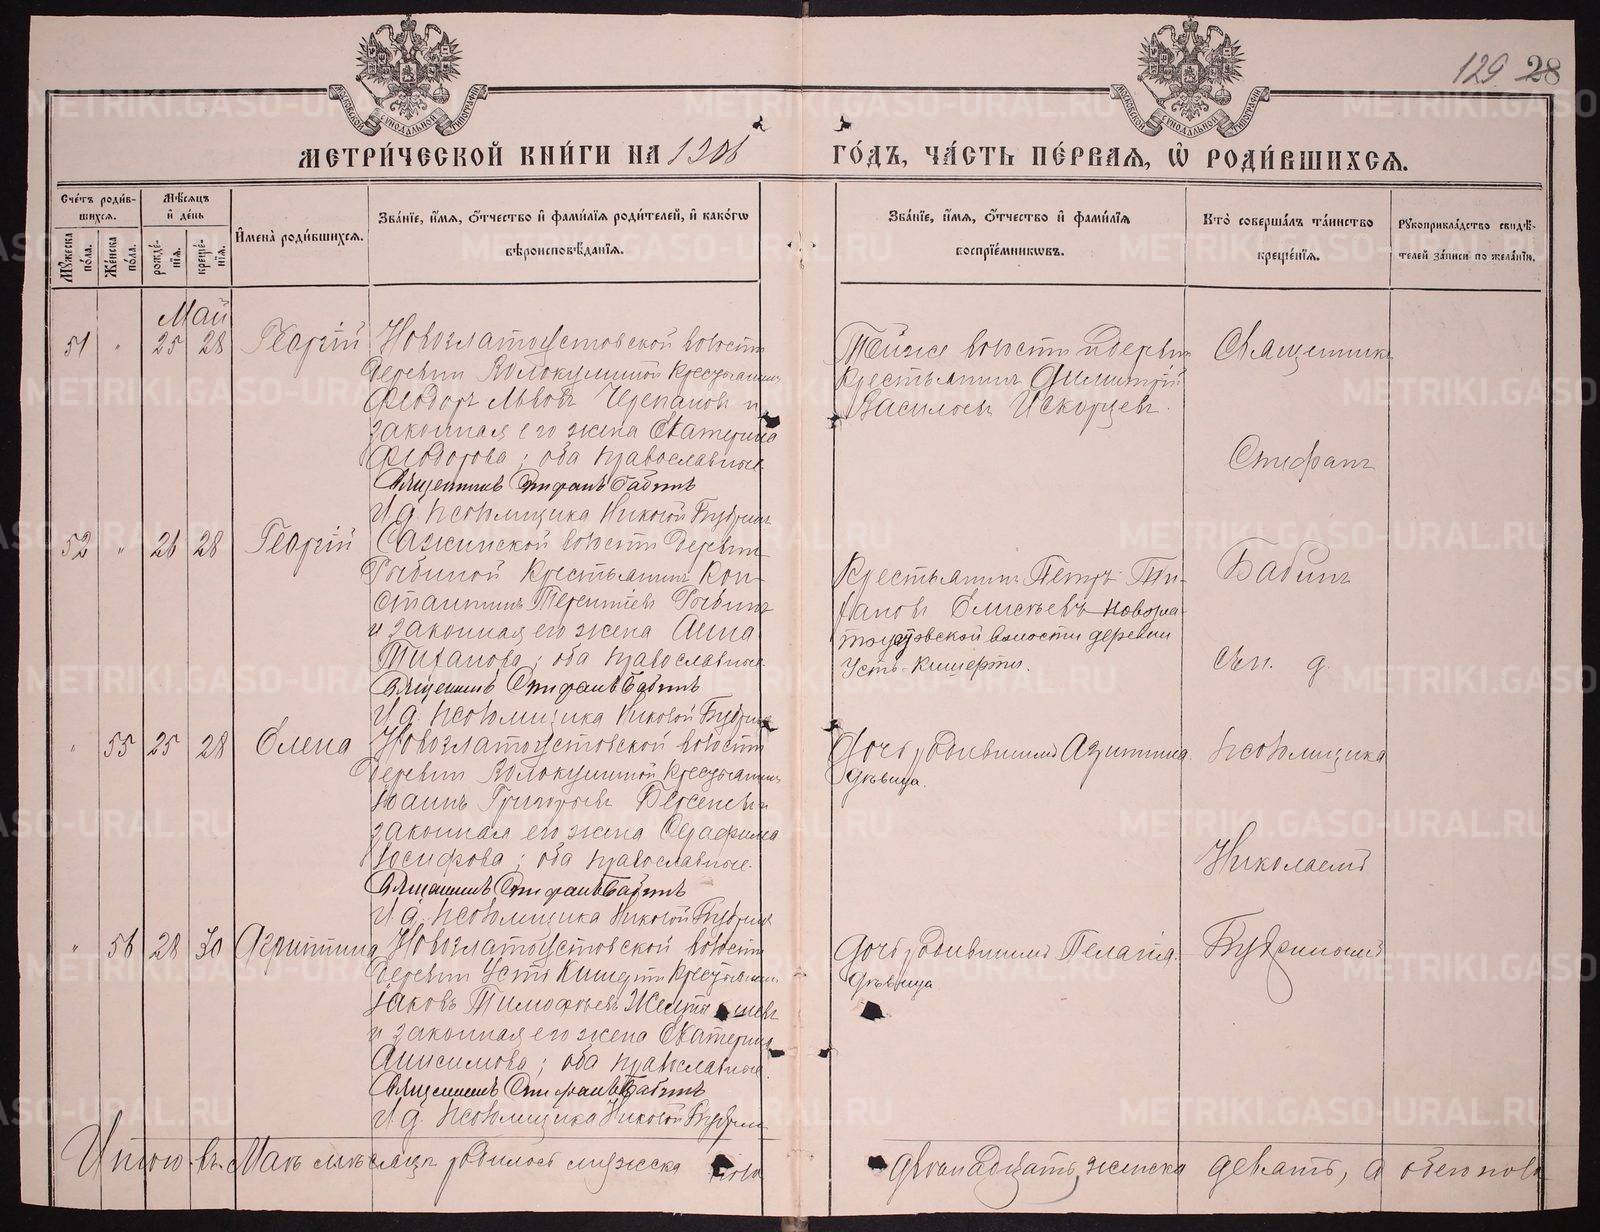 129 28
МЕТРИ́ЧЕСКОЙ КНИ́ГИ НА 1906
ГО́ДЪ, ЧА́СТЬ ПЕ́РВАЯ, Ѽ РОДИ́ВШИХСЯ.
Сче́тъ роди́в-
шихся.
Му́жеска по́ла.
Же́нска по́ла.
Мѣ́сяцъ
и҆ де́нь
рожде́-
нїя.
креще́-
нїя.
И҆мена̀ роди́вшихся.
Зва́нїе, и҆́мя, ѻ҆́тчество и҆ фами́лїя роди́телей, и҆ како́гѡ
вѣроисповѣ́данїя.
Зва́нїе, и҆́мя, ѻ҆́тчество и҆ фами́лїя
воспрїе́мникѡвъ.
Кто̀ соверша́лъ та́инство
креще́нїя.
Рукоприкла́дство свидѣ́-
телей за́писи по жела́нїю.
Май
51 " 25 28 Георгій
Новозлатоустовской волости
деревни Волокушиной крестьянинъ
Феодоръ Львовъ Черепановъ и
законная его жена Екатерина
Феодорова; оба православные
Священникъ Стефанъ Бабинъ
И. д. псаломщика Николай Будринъ
Той же волости и деревни
крестьянинъ Димитрій
Васильевъ Искорцевъ.
52 " 26 28 Георгій
Сажинской волости деревни
Рыбиной крестьянинъ Кон-
стантинъ Терентіевъ Рыбинъ
и законная его жена Анна
Тиханова; оба православные
Священникъ Стефанъ Бабинъ
И. д. псаломщика Николай Будринъ
Крестьянинъ Петръ Ти-
хановъ Елисѣевъ Новозла-
тоустовской волости деревни
Усть-Кишерти.
" 55 25 28 Елена
Новозлатоустовской волости
деревни Волокушиной крестьянинъ
Іоаннъ Григорьевъ Берсеневъ
законная его жена Серафима
Іосифова; оба православные.
Священникъ Стефанъ Бабинъ
И. д. псаломщика Николай Будринъ
Дочь родившимъ Агриппина
дѣвица.
" 56 28 30 Агриппина
Новозлатоустовской волости
деревни Усть Кишерти крестьянинъ
Іаковъ Тимофѣевъ
и законная его жена Екатерина
Анисимова; оба православные
Священникъ Стефанъ Бабинъ
И. д. псаломщика Николай Будринъ
Дочь родившимъ Пелагія
дѣвица
Священникъ
Стефанъ
Бабинъ
съ и. д.
псаломщика
Николаемъ
Будринымъ
Итого въ Маѣ мѣсяцѣ родилось мужска пола
двѣнадцать, женска девять, а обего пола
METRIKI.GASO-URAL.RU